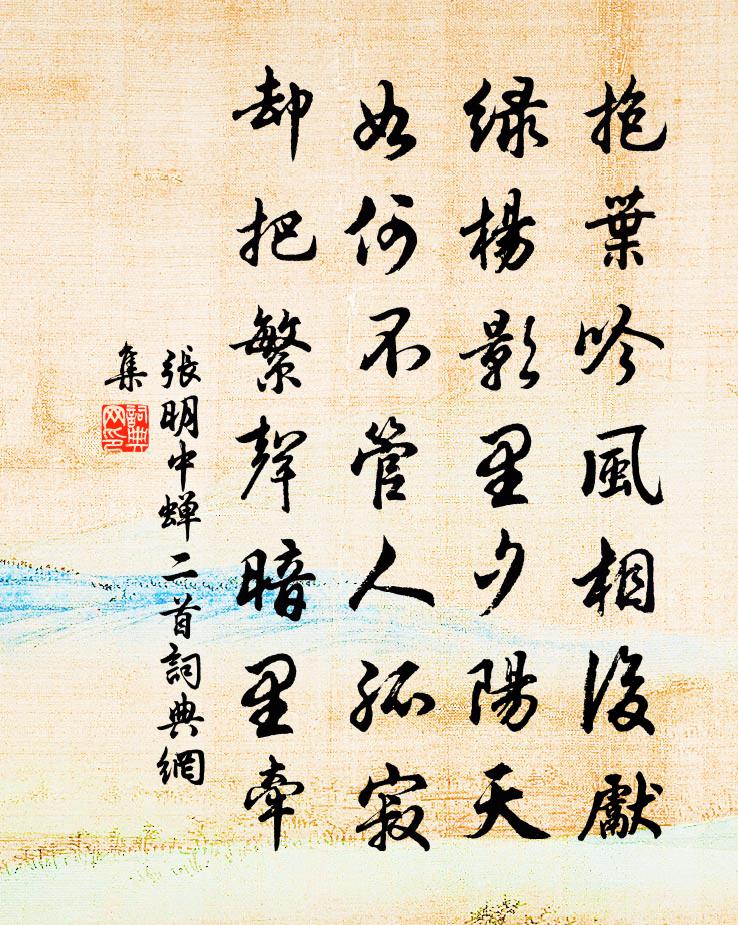 抱葉吟風相後獻
綠楊影里夕陽天
如何不管人孤寂
却把繁聲暗里牽
張明中蟬二首詞典網
集
詞典
网印